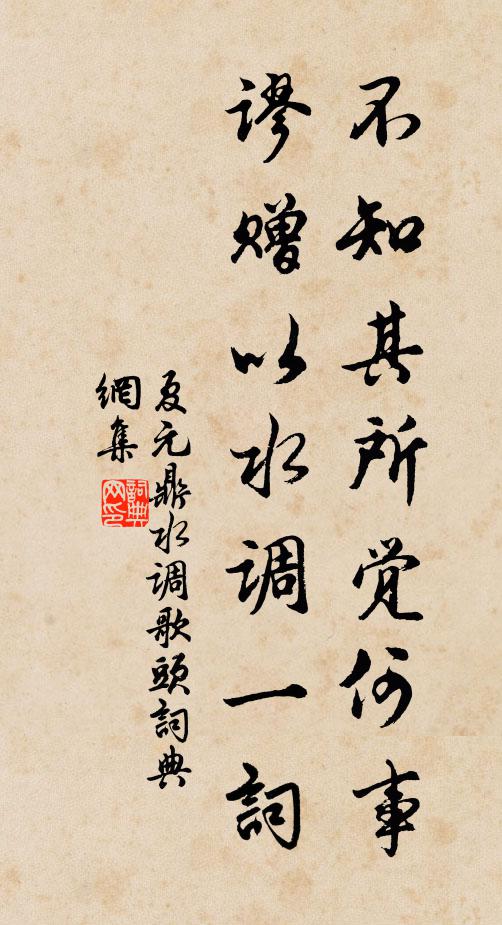 不知其所觉何事
谬赠以水调一词
夏元鼎水调歌頭詞典
網集
詞典
网印